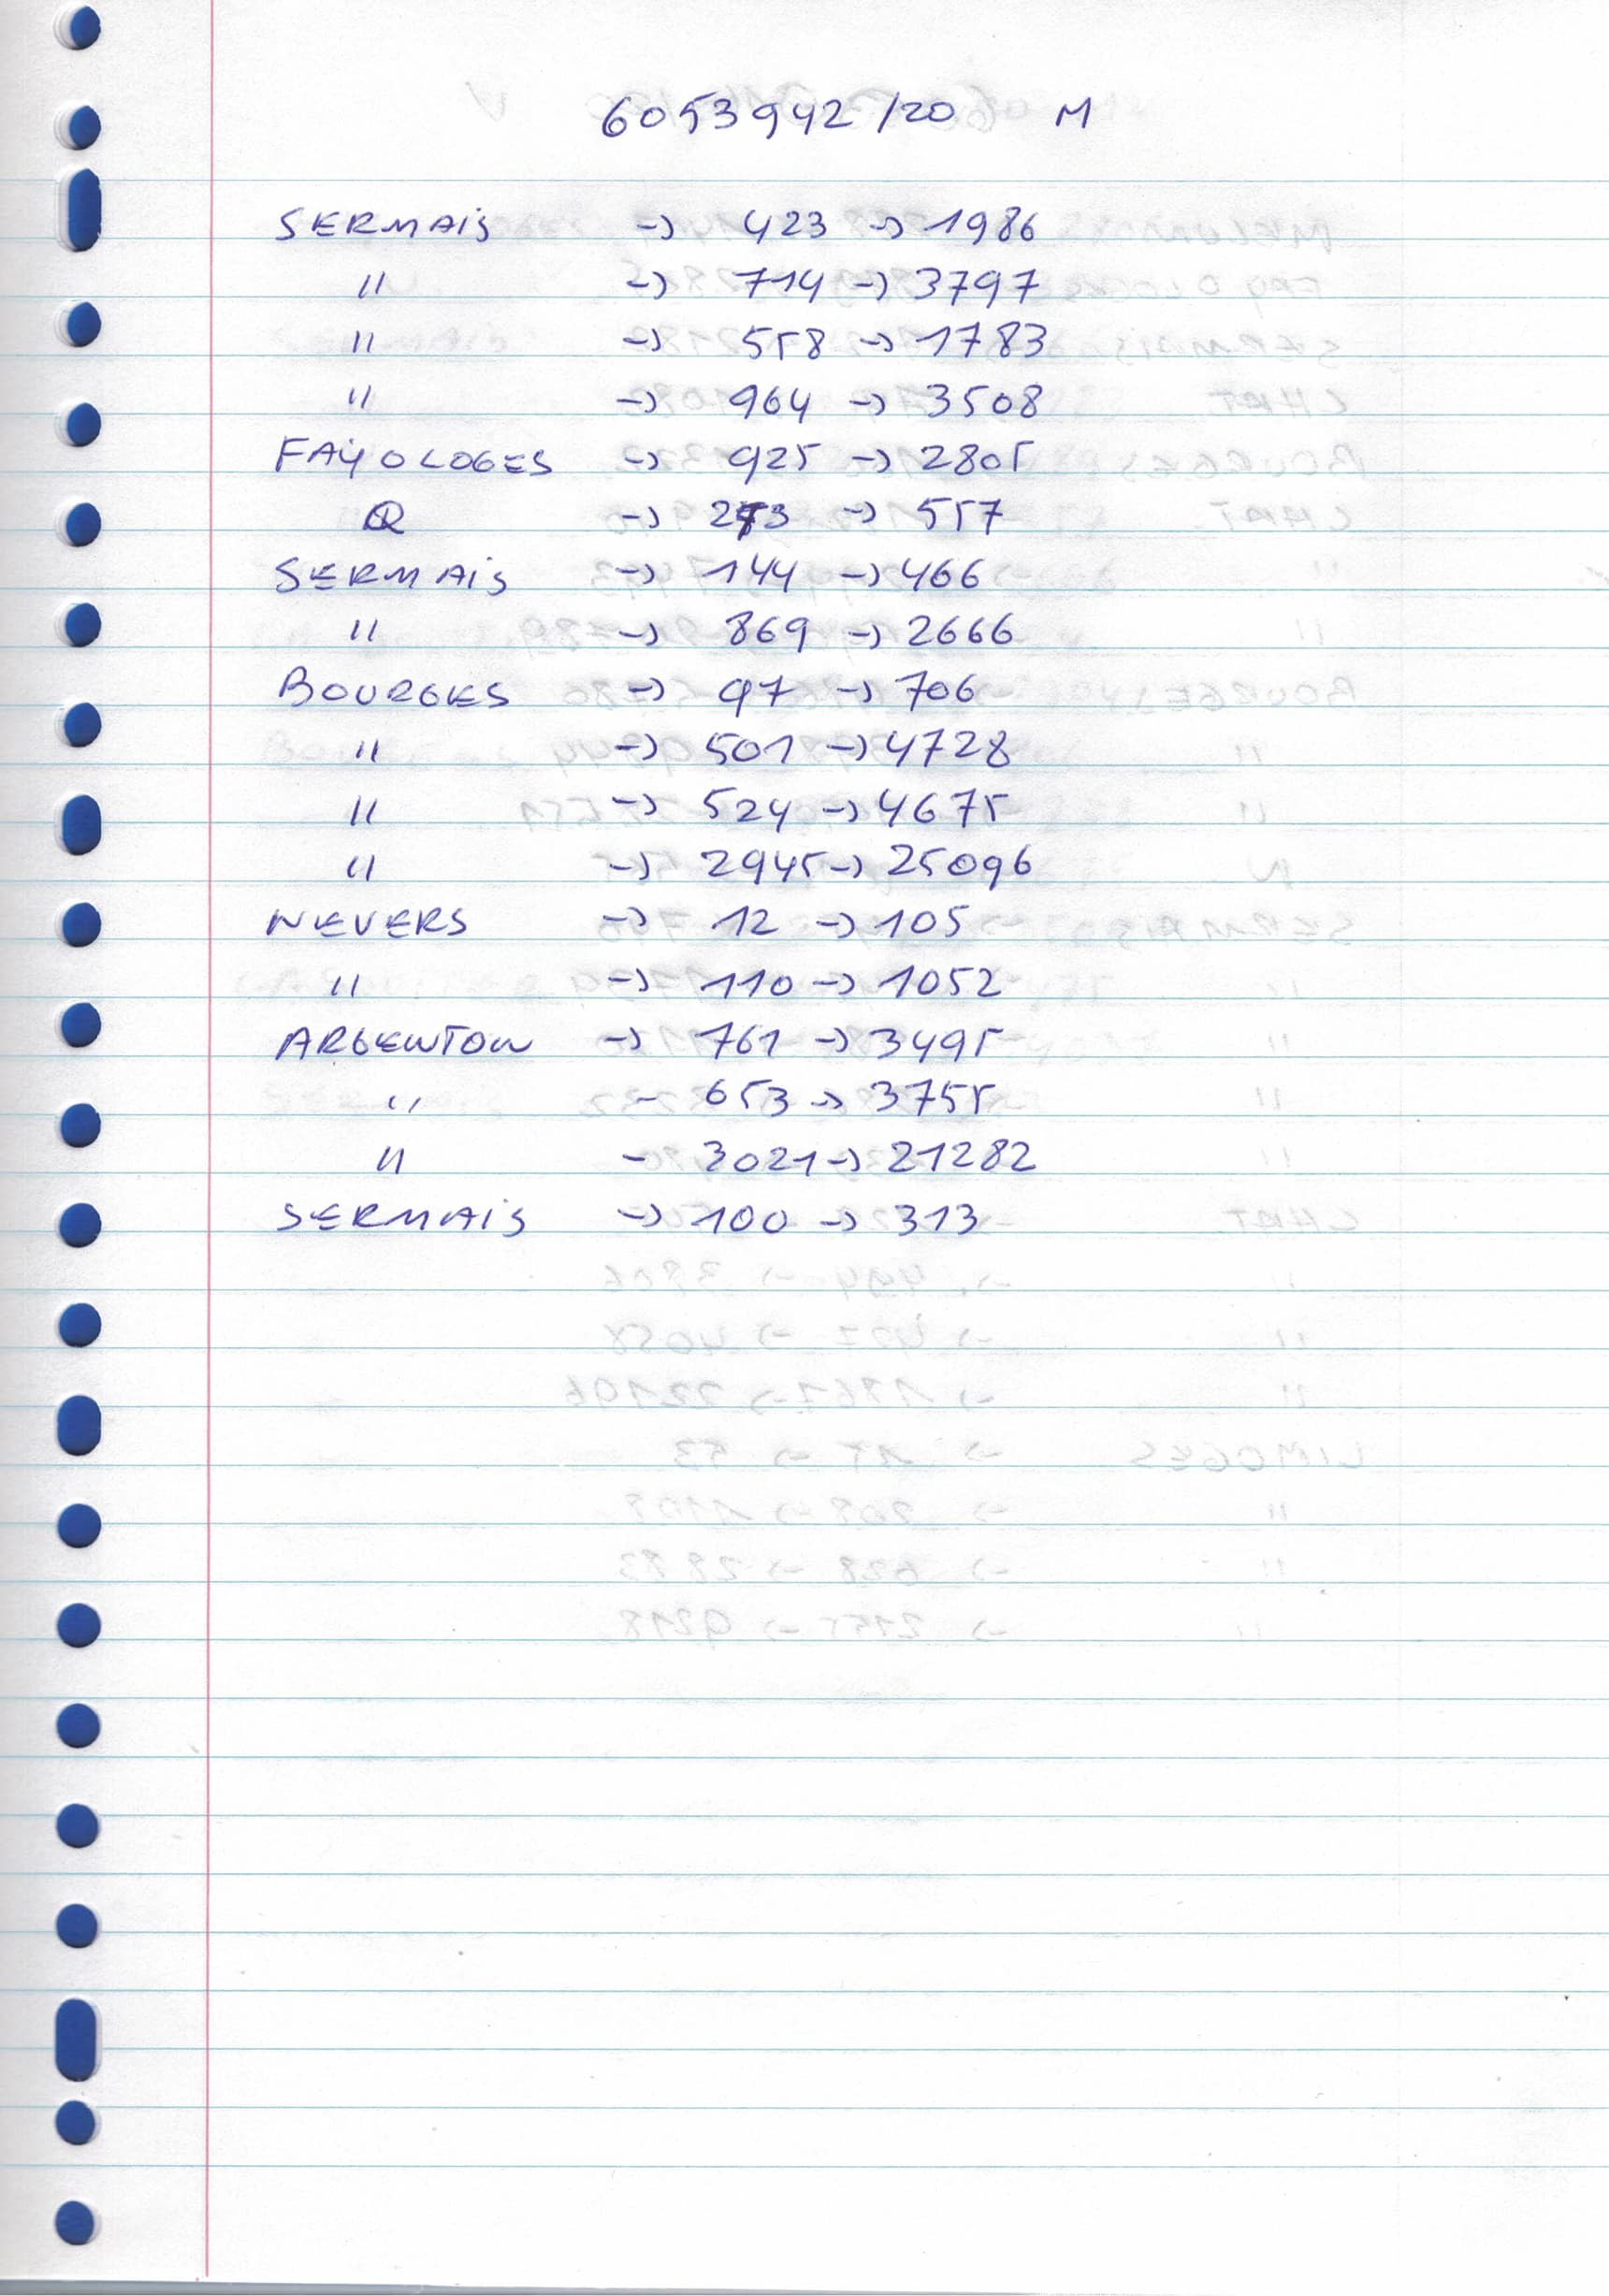 6053942/20 M
SERMAiS -> 423 -> 1986
" -> 714 -> 3797
" -> 558 -> 1783
" -> 964 -> 3508
FAYOLOGES -> 925 -> 2805
Q -> 273 -> 557
SERMAiS -> 144 -> 466
" -> 869 -> 2666
BOURGES -> 97 -> 706
" -> 501 -> 4728
" -> 524 -> 4675
" -> 2945 -> 25096
NEVERS -> 12 -> 105
" -> 110 -> 1052
ARGENTON -> 761 -> 3495
" - 653 -> 3755
" - 3021 -> 21282
SERMAiS -> 100 -> 313